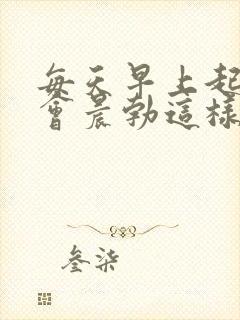 每天早上起
會晨勃這樣
叁柒